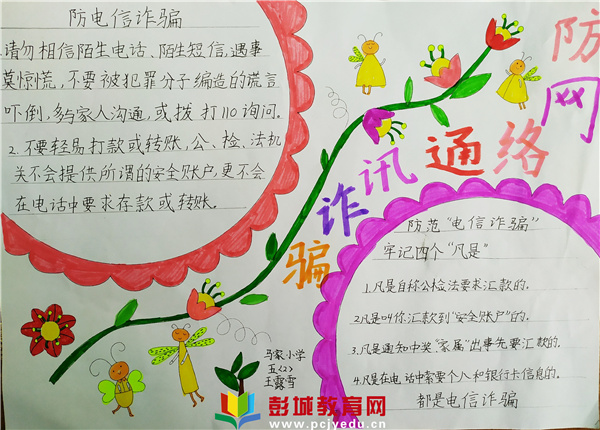 防电信诈骗
请勿相信陌生电话、陌生短信,遇事
莫惊慌,不要被犯罪分子编造的谎言
吓倒,多与家人沟通,或拨打110询问。
2.不要轻易打款或转账,公、检、法机
关不会提供所谓的安全账户,更不会
在电话中要求存款或转账。
防网络通讯诈骗
防范"电信诈骗"
牢记四个"凡是"
1.凡是自称公检法要求汇款的。
2.凡是叫你汇款到"安全账户"的。
3.凡是通知中奖"家属"出事先要汇款的。
4.凡是在电话中索要个人和银行卡信息的。
都是电信诈骗
马家小学
五<2>
王露雪
彭城教育网
www.pcjyedu.cn